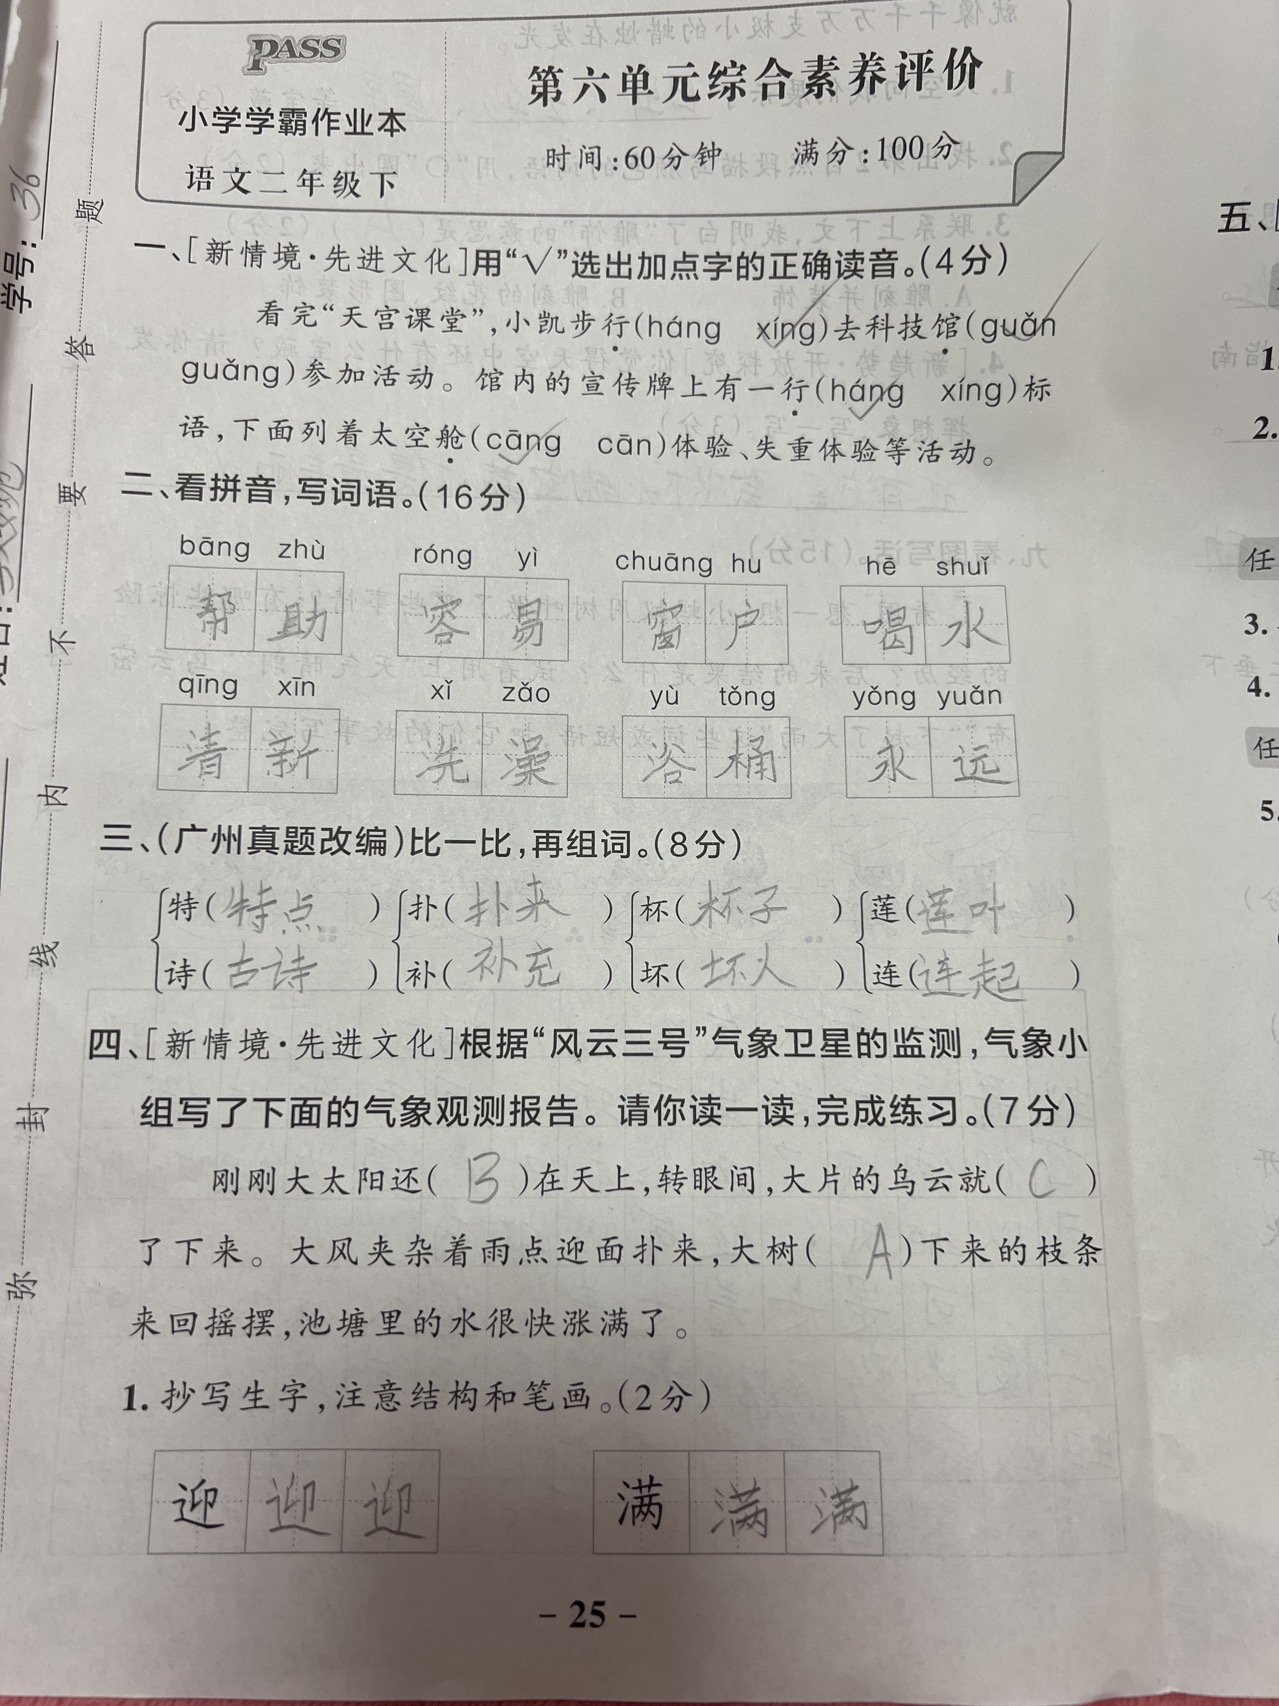 PASS
小学学霸作业本
语文二年级下
第六单元综合素养评价
时间:60分钟 满分:100分
一、[新情境·先进文化]用“√”选出加点字的正确读音。(4分)
看完“天宫课堂”,小凯步行(háng xíng)去科技馆(guǎn
guǎng)参加活动。馆内的宣传牌上有一行(háng xíng)标
语,下面列着太空舱(cāng cān)体验、失重体验等活动。
二、看拼音,写词语。(16分)
bāng zhù róng yì chuāng hu hē shuǐ
帮助 容易 窗户 喝水
qīng xīn xǐ zǎo yù tǒng yǒng yuǎn
清新 洗澡 浴桶 永远
三、(广州真题改编)比一比,再组词。(8分)
特(特点) 扑(扑来) 杯(杯子) 莲(莲叶)
诗(古诗) 补(补充) 坏(坏人) 连(连起)
四、[新情境·先进文化]根据“风云三号”气象卫星的监测,气象小
组写了下面的气象观测报告。请你读一读,完成练习。(7分)
刚刚大太阳还(B)在天上,转眼间,大片的乌云就(C)
了下来。大风夹杂着雨点迎面扑来,大树(A)下来的枝条
来回摇摆,池塘里的水很快涨满了。
1.抄写生字,注意结构和笔画。(2分)
迎迎迎 满满满
-25-
学号:36
弥 封 线 内 不 要 答 题
五、
1.
2.
任
3.
4.
任
5.